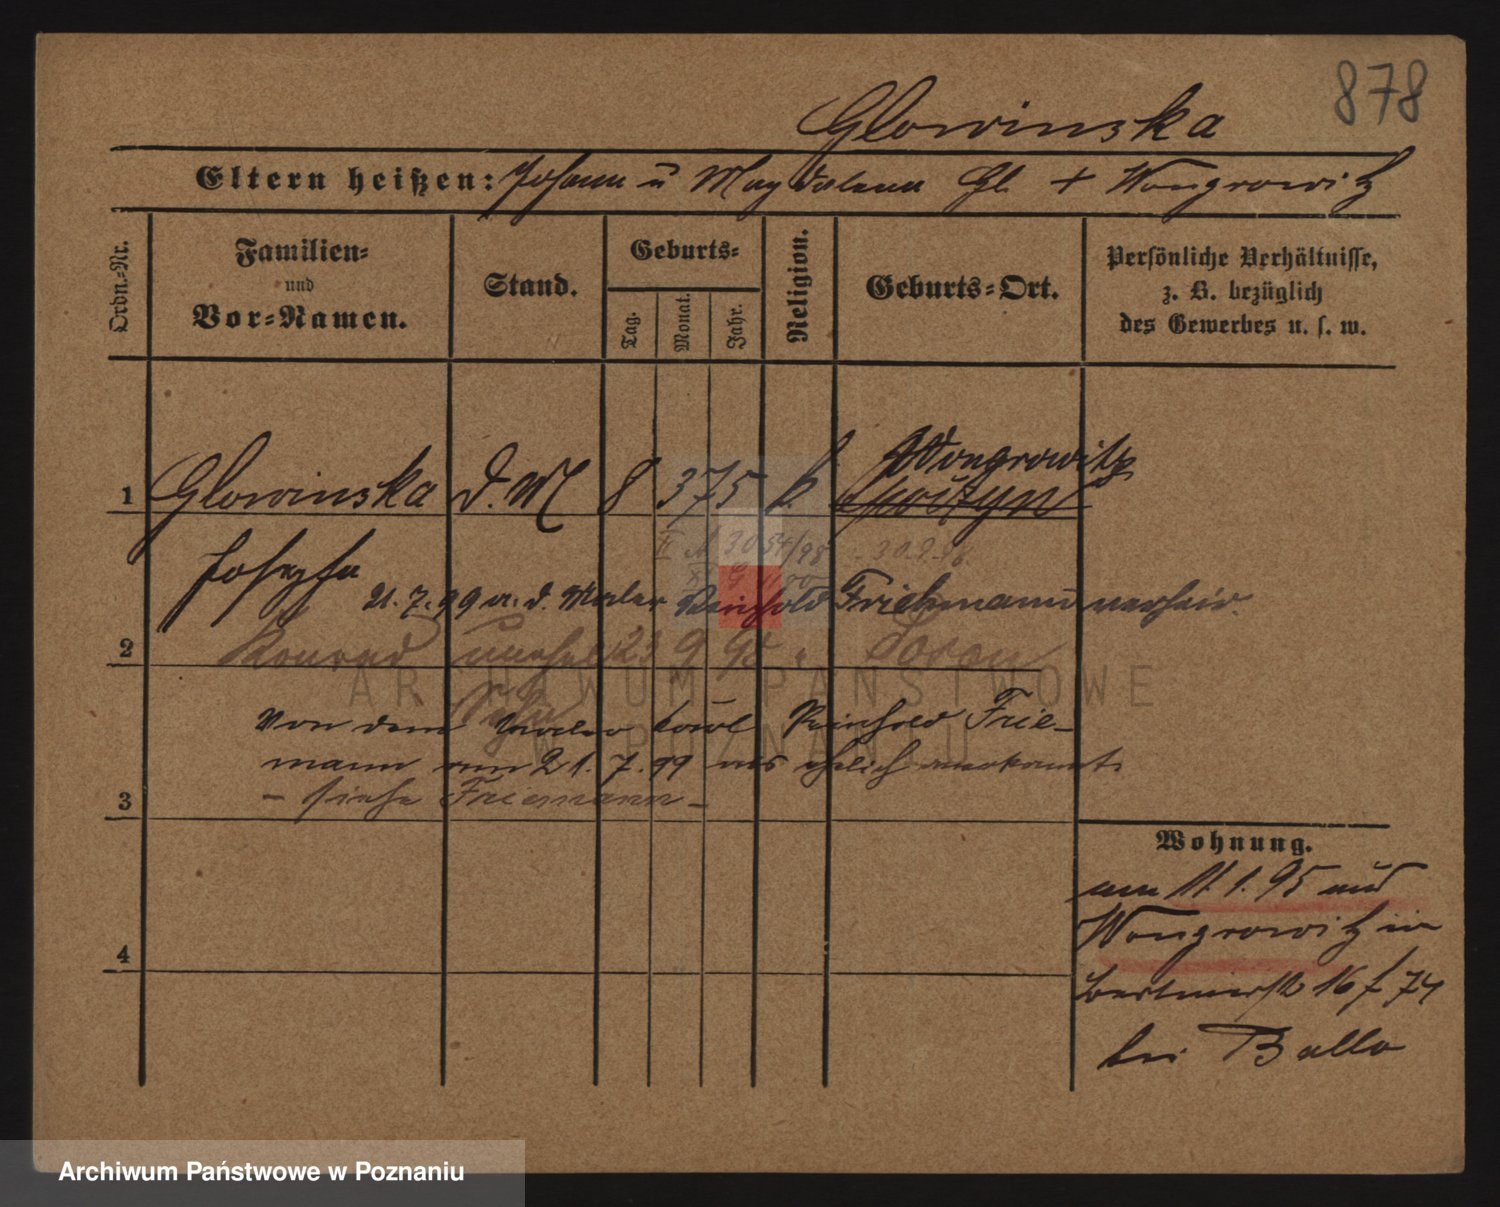 878
Glowinska
Eltern heißen: Johann u Magdalena Gl. + Wongrowitz
Ordn.-Nr.
Familien-
und
Vor-Namen.
Stand.
Geburts-
Tag.
Monat.
Jahr.
Religion.
Geburts-Ort.
Persönliche Verhältnisse,
z. B. bezüglich
des Gewerbes u. s. w.
Wongrowitz
1 Glowinska d. M 8 3 75 k.
Josepha
30.9.98.
21. 7. 99 m. d. Maler Reinhold Friehmann verheir.
2 Konrad unehel 23 9 95 "
Sohn
Von dem Maler Karl Reinhold Frie-
mann am 21. 7. 99 als ehelich anerkannt
3 - siehe Friemann -
Wohnung.
am 11. 1. 95 aus
Wongrowitz in
16 f 74
bei Ballo
4
ARCHIWUM PAŃSTWOWE
W POZNANIU
Archiwum Państwowe w Poznaniu